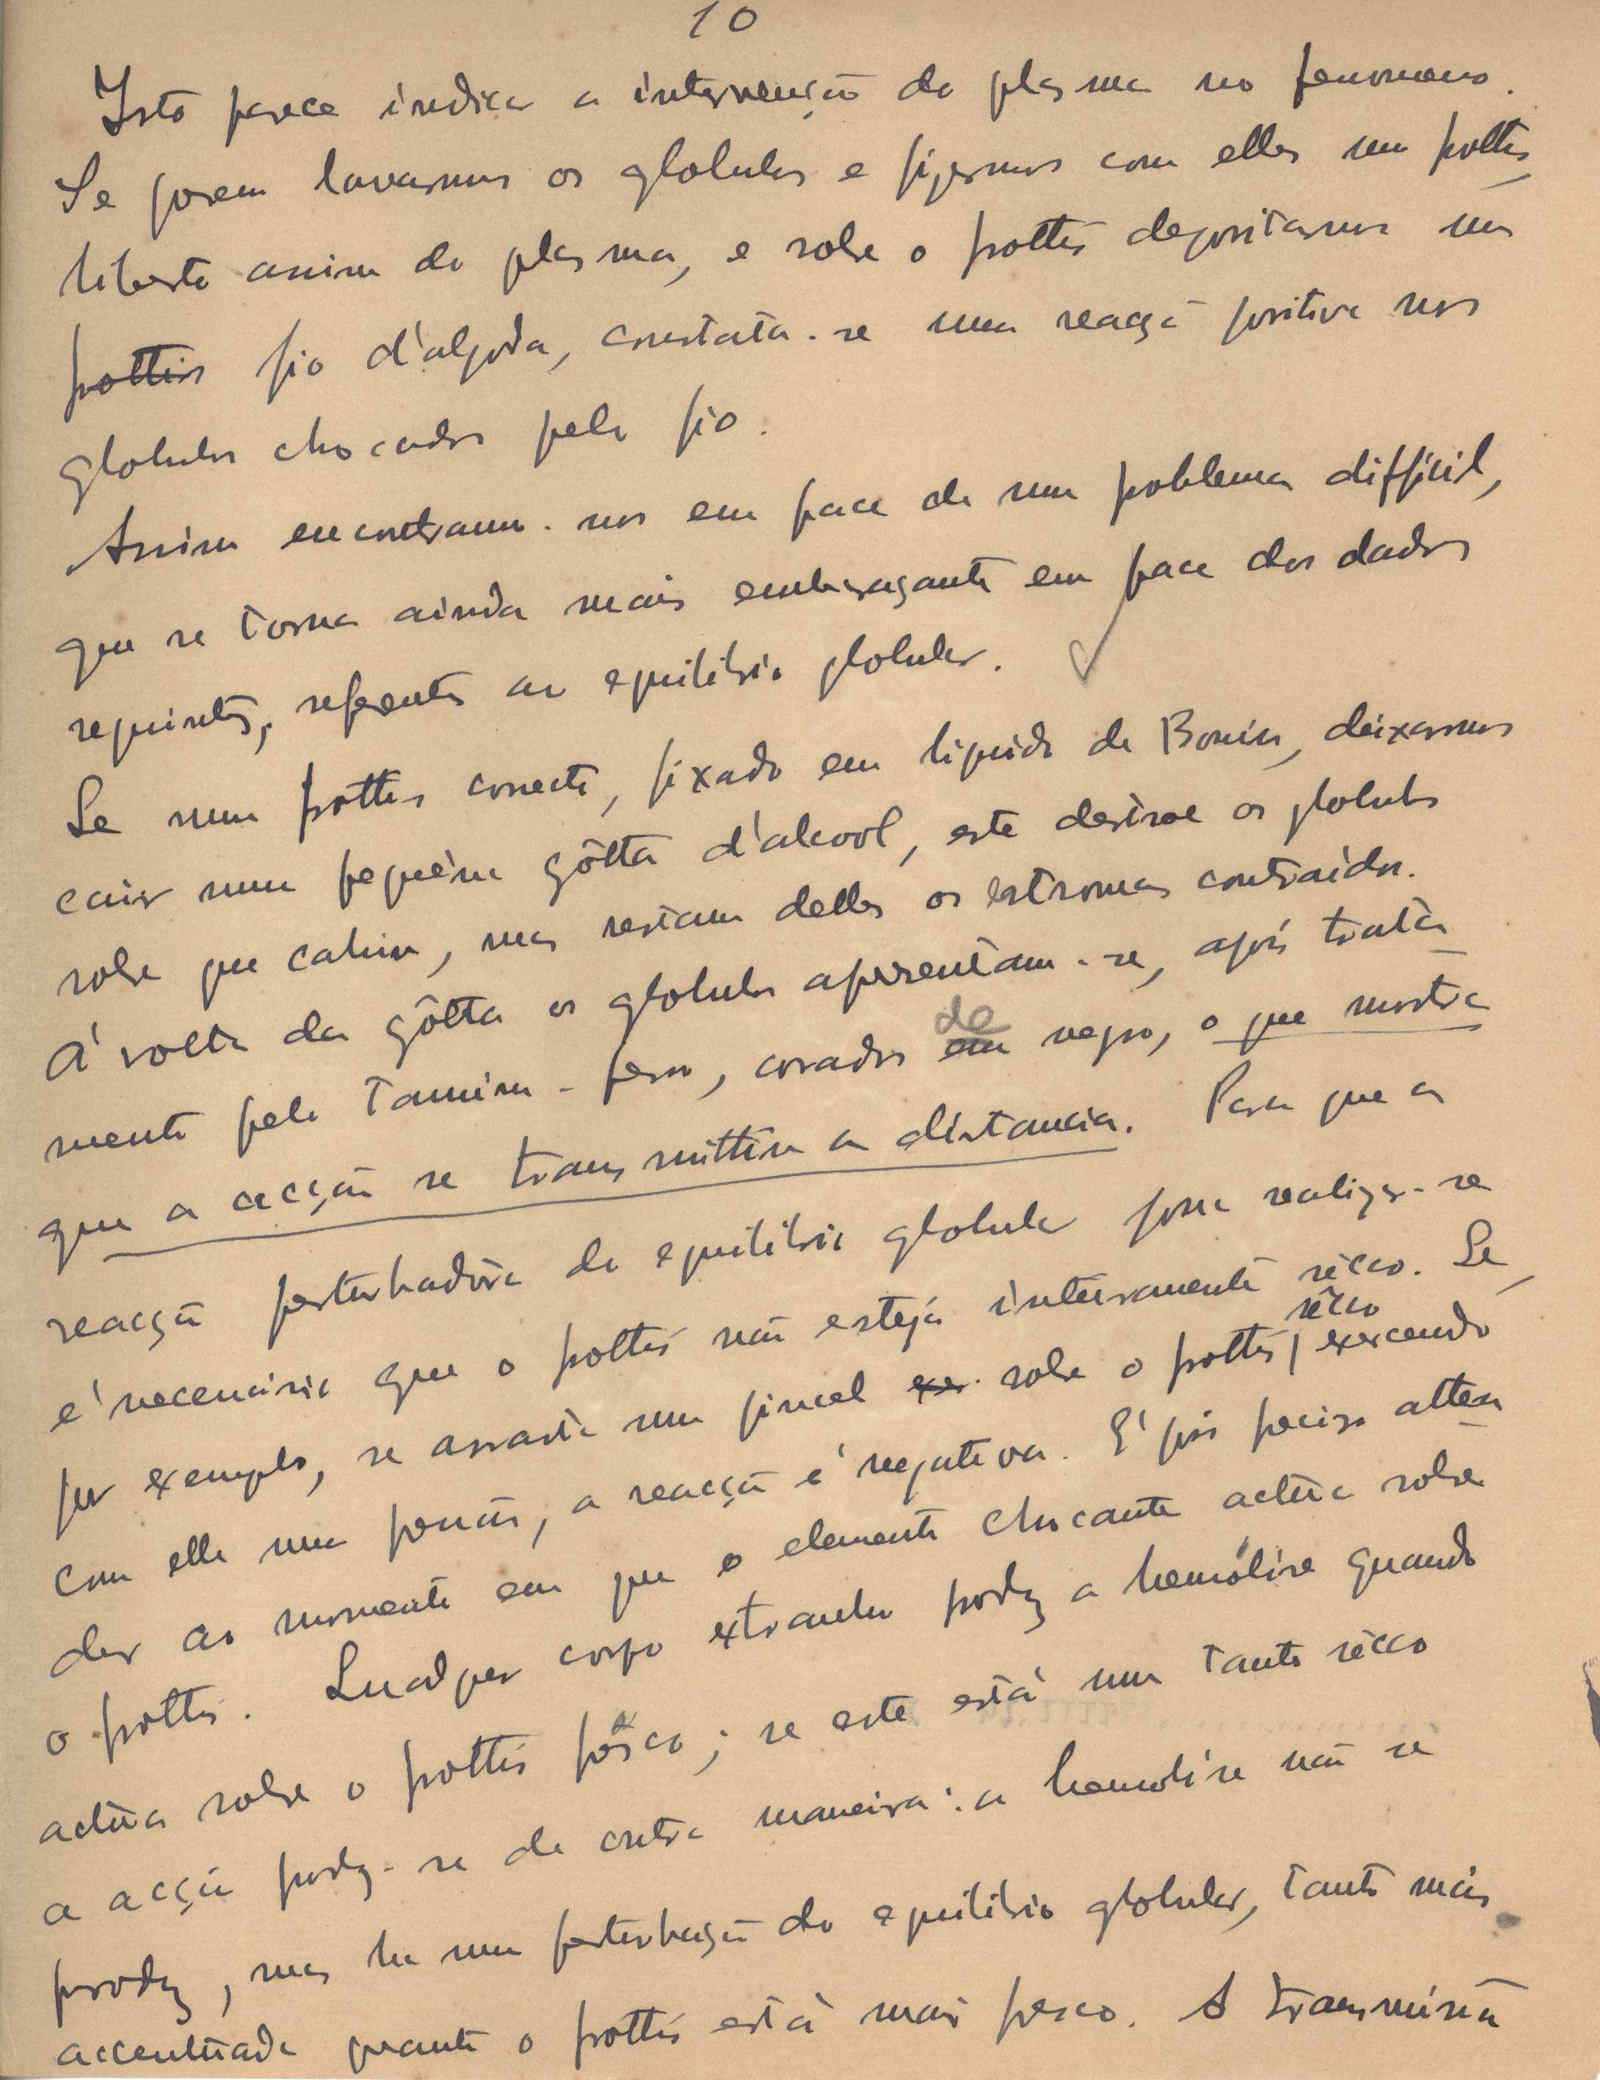 10
Isto parece indicar a intervenção do plasma no fenomeno.
Se porem lavarmos os globulos e fizermos com elles um frottis,
liberto assim do plasma, e sobre o frottis depositarmos um
frottis fio d'algodão, constata-se uma reacção positiva nos
globulos chocados pelo fio.
Assim encontramo-nos em face de um problema difficil,
que se torna ainda mais embaraçante em face dos dados
seguintes, referentes ao equilibrio globular.
Se num frottis correcto, fixado em liquido de Bouin, deixarmos
cair uma pequêna gôtta d'alcool, este destroe os globulos
sobre que cahiu, mas restam delles os estromas contraídos.
Á volta da gôtta os globulos apresentam-se, após trata-
mento pelo tannino-ferro, corados em de negro, o que mostra
que a acção se transmittiu a distancia. Para que a
reacção perturbadôra do equilibrio globular possa realizar-se
é necessario que o frottis não estejá inteiramente sêcco. Se,
por exemplo, se arrasta um pincel exer sobre o frottis sêcco exercendo
com elle uma pressão, a reacção é negativa. É pois preciso atten-
der ao momento em que o elemento chocante actúa sobre
o frottis. Qualquer corpo extranho produz a hemólise quando
actúa sobre o frottis frêsco; se este está um tanto sêcco
a acção produz-se de outra maneira: a hemolise não se
produz, mas ha uma perturbação do equilibrio globular, tanto mais
accentuada quanto o frottis está mais fresco. A transmissão